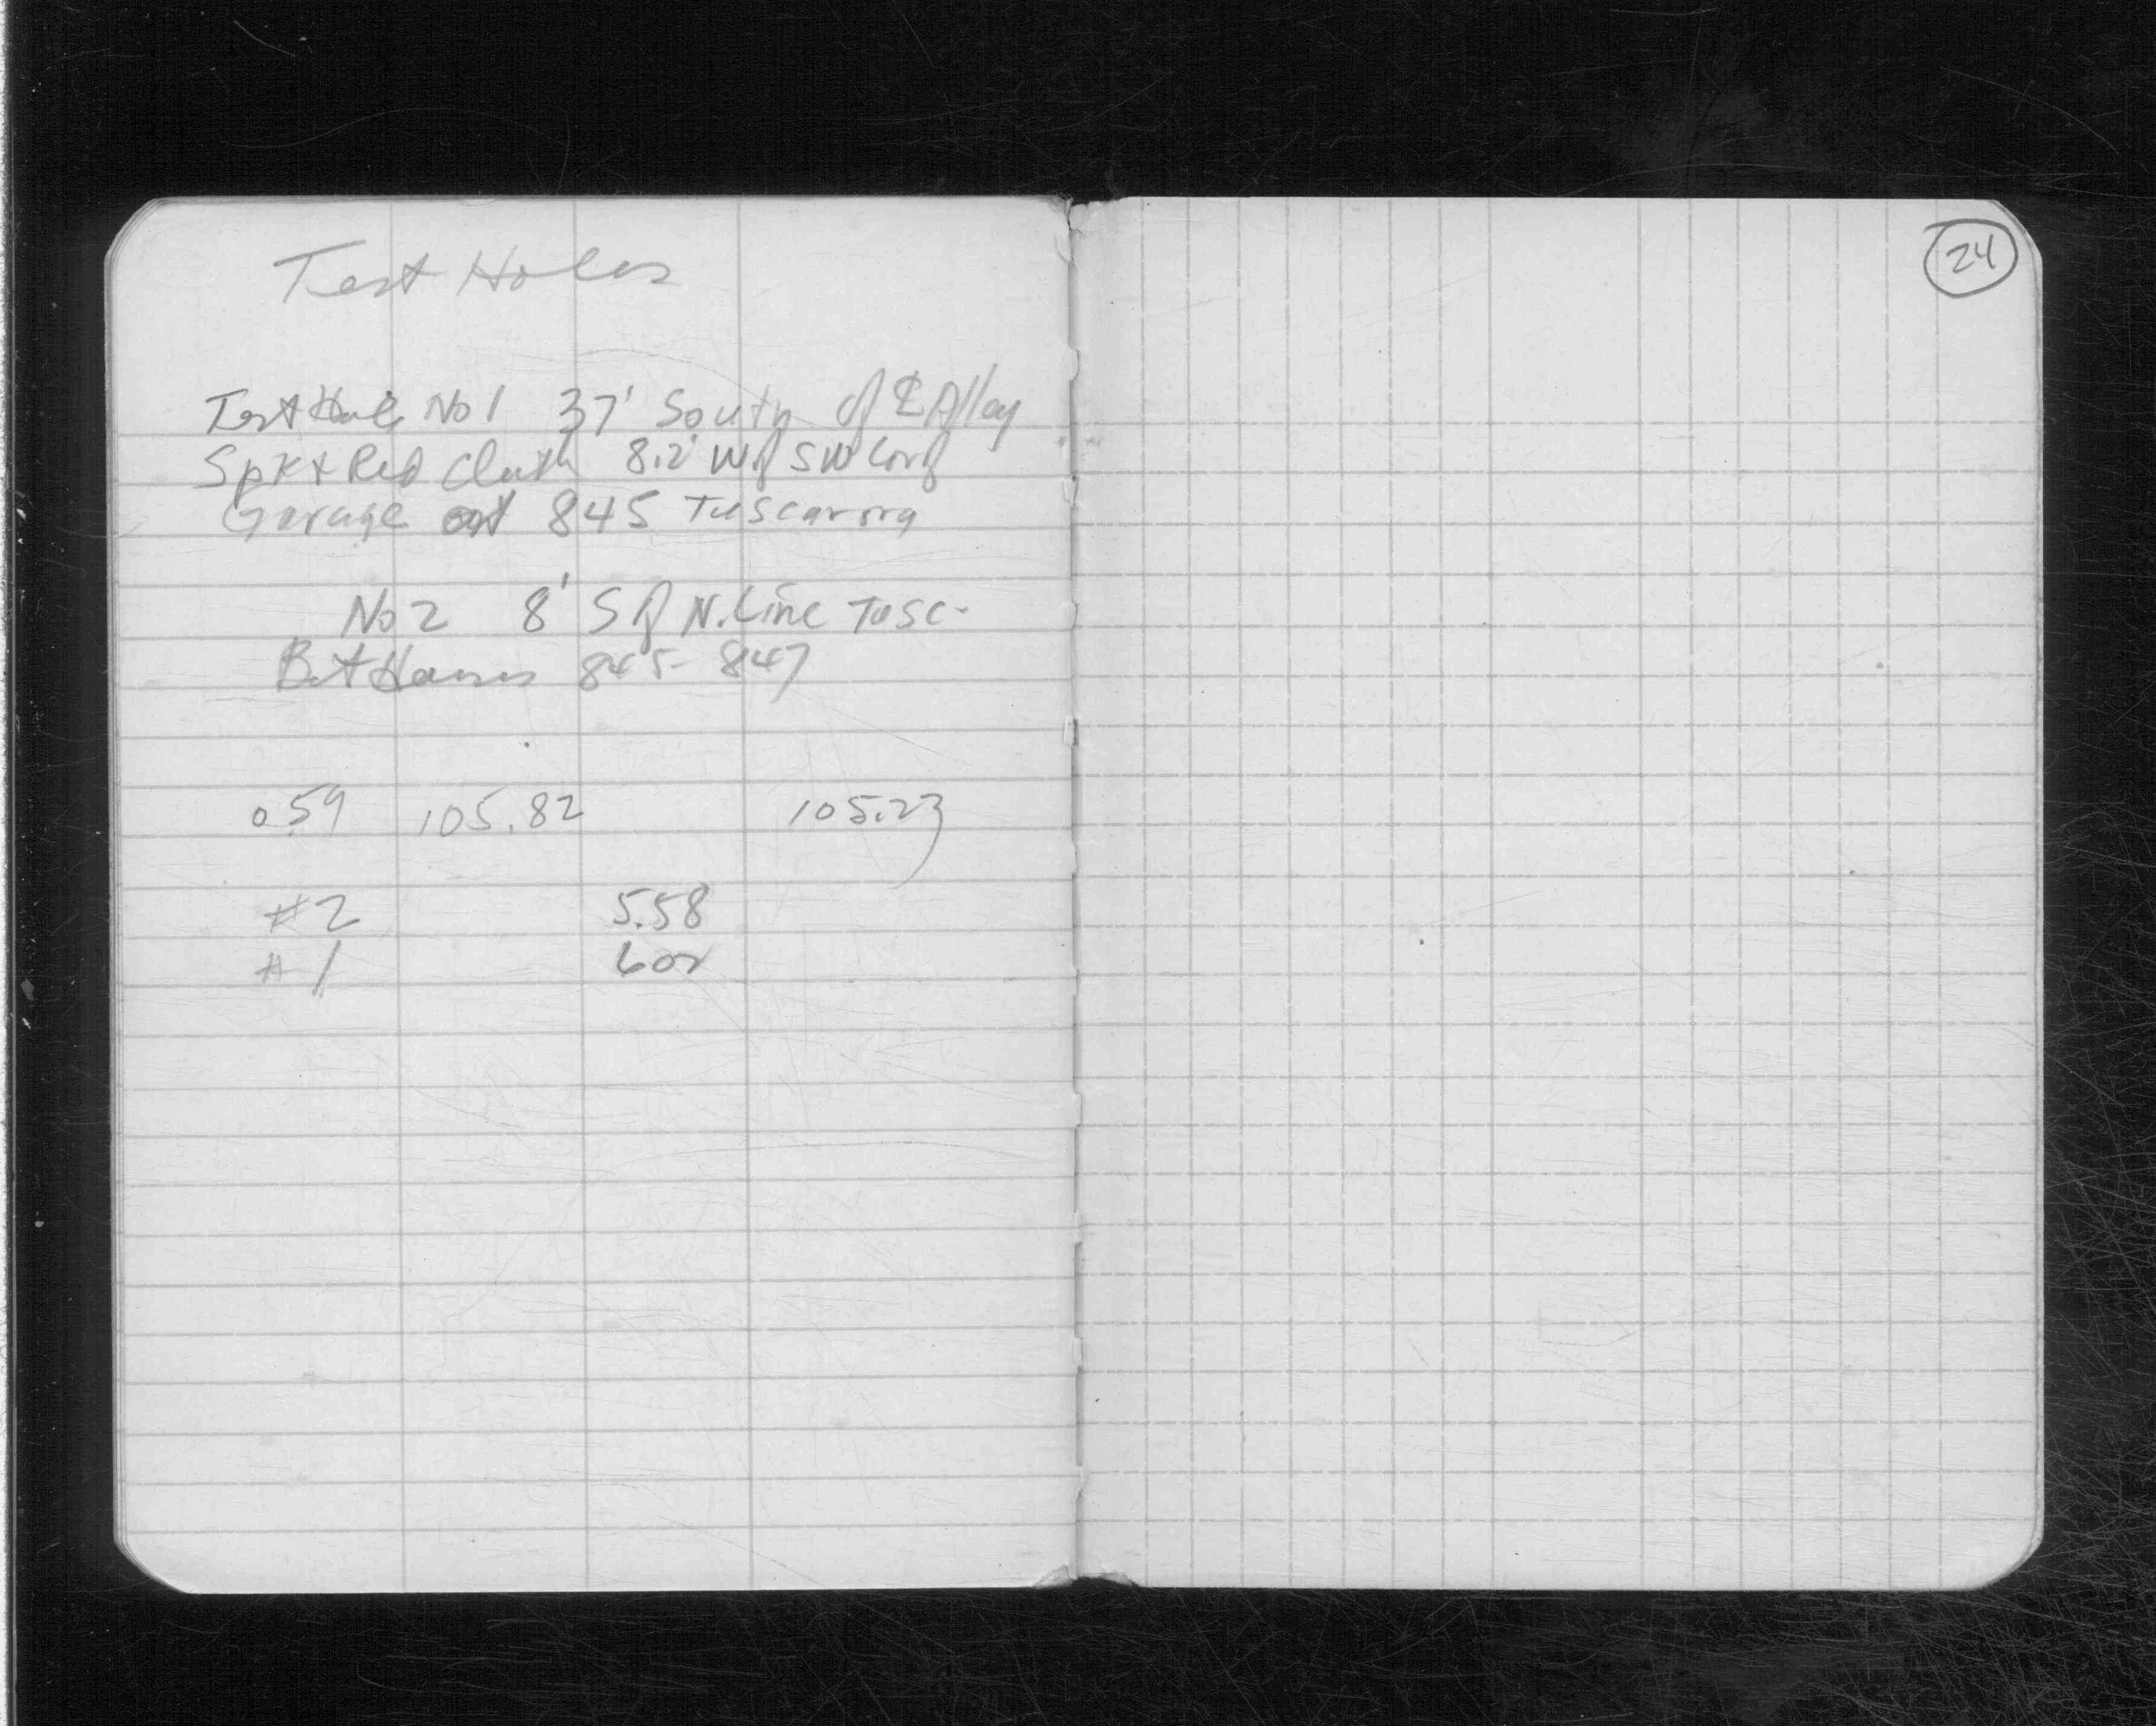 Test Holes
24
Test Hole No 1 37' South of ℄ Alley
Spk + Red Cloth 8.2' W of SW Cor of
Garage at 845 Tuscarora
No 2 8' S of N. Line Tusc.
Bet Houses 845-847
0.59 105.82 105.23
#2 5.58
#1 602